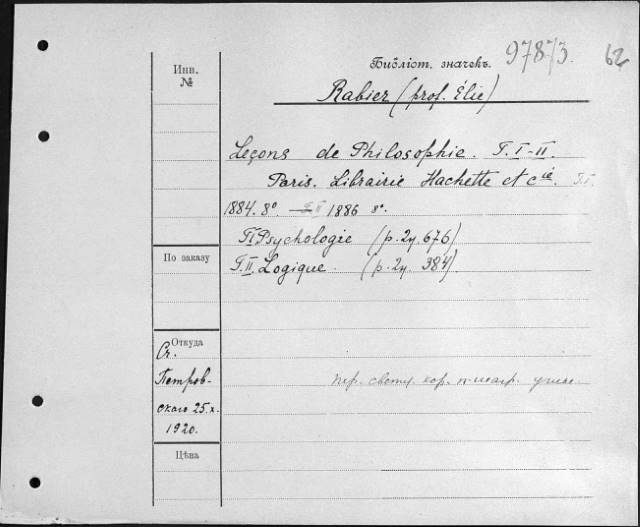 Инв.
№
Библіот. значекъ.
97873
62
Rabier (prof. Élie)
Leçons de Philosophie. T. I-II.
Paris. Librairie Hachette et cie. T.I.
1884. 8º — T.II 1886 8º.
T.I Psychologie (p. 2у. 676)
По заказу
T. II. Logique. (p. 2у. 384).
Откуда
Ст.
Петров-
ского 25.X.
1920.
Цѣна